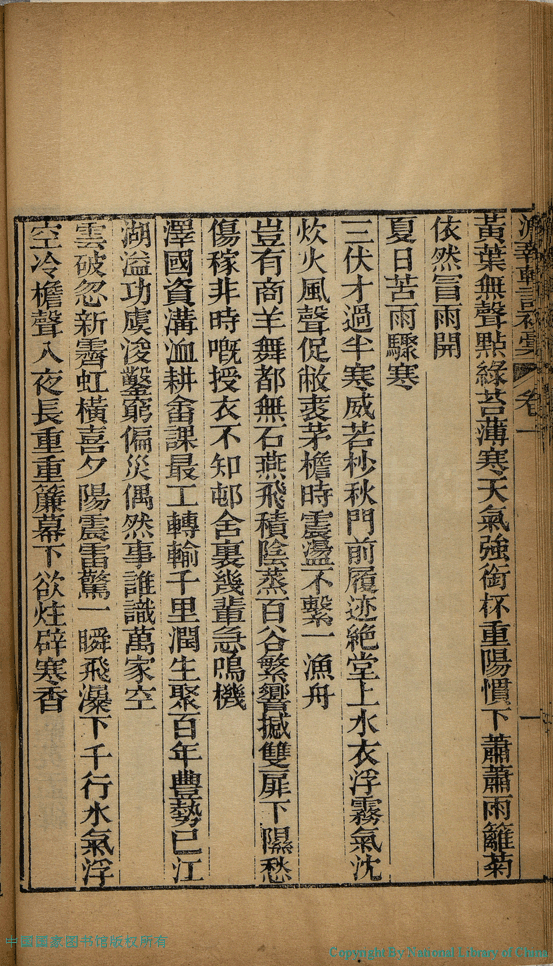 卷一
一
黃葉無聲點綠苔薄寒天氣強銜杯重陽慣下蕭蕭雨籬菊
依然冐雨開
夏日苦雨驟寒
三伏才過半寒威若杪秋門前履迹絶堂上水衣浮霧氣沈
炊火風聲促敝裘茅檐時震盪不繫一漁舟
豈有商羊舞都無石燕飛積陰蒸百谷繁響撼雙扉下隰愁
傷稼非時嘅授衣不知邨舍裏幾輩急鳴機
澤國資溝洫耕畬課最工轉輸千里潤生聚百年豐勢已江
湖溢功虞浚鑿窮偏災偶然事誰識萬家空
雲破忽新霽虹橫喜夕陽震雷驚一瞬飛瀑下千行水氣浮
空冷檐聲入夜長重重簾幕下欲炷辟寒香
中国国家图书馆版权所有
Copyright By National Library of China